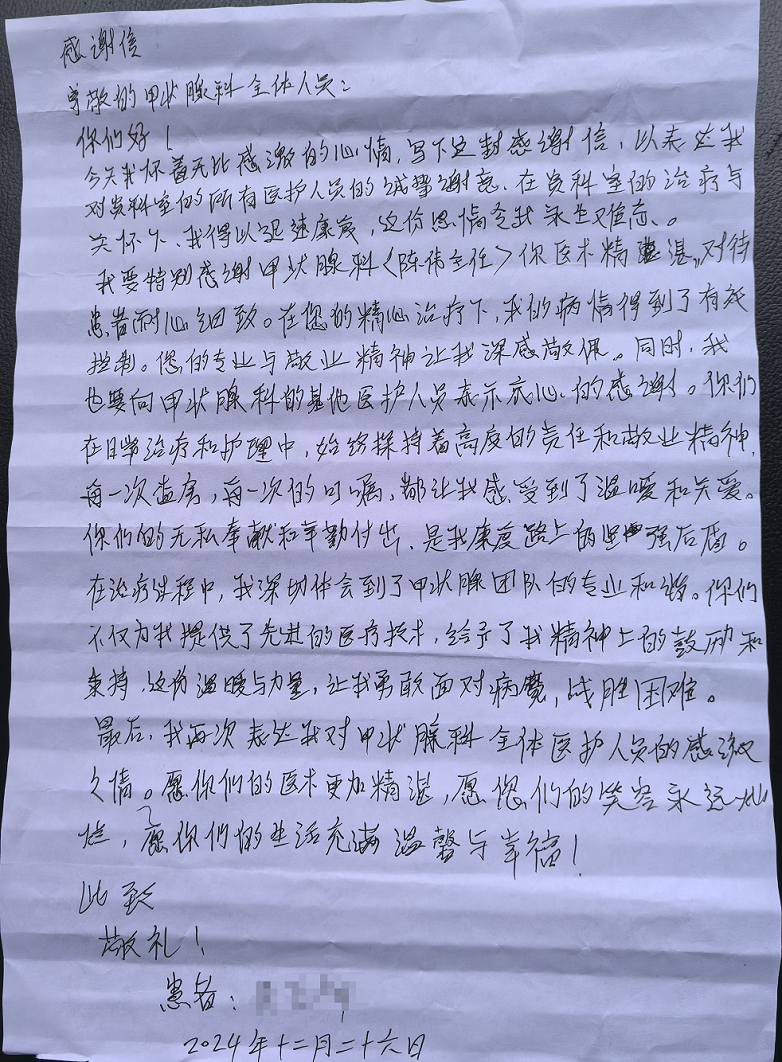 感谢信
尊敬的甲状腺科全体人员：
你们好！
今天我怀着无比感激的心情，写下这封感谢信，以表达我
对贵科室的所有医护人员的诚挚谢意。在贵科室的治疗与
关怀下、我得以迅速康复，这份恩情令我永生难忘。
我要特别感谢甲状腺科<陈伟主任>你医术精湛，对待
患者耐心细致。在您的精心治疗下，我的病情得到了有效
控制。您的专业与敬业精神让我深感敬佩。同时，我
也要向甲状腺科的其他医护人员表示衷心的感谢。你们
在日常治疗和护理中，始终保持着高度的责任和敬业精神，
每一次查房，每一次的叮嘱，都让我感受到了温暖和关爱。
你们的无私奉献和辛勤付出、是我康复路上的坚强后盾。
在治疗过程中，我深切体会到了甲状腺团队的专业和谐。你们
不仅为我提供了先进的医疗技术，给予了我精神上的鼓励和
支持，这份温暖与力量，让我勇敢面对病魔，战胜困难。
最后，我再次表达我对甲状腺科全体医护人员的感激
之情。愿你们的医术更加精湛，愿您们的笑容永远灿
烂，愿你们的生活充满温馨与幸福！
此致
敬礼！
患者：
2024年十二月二十六日